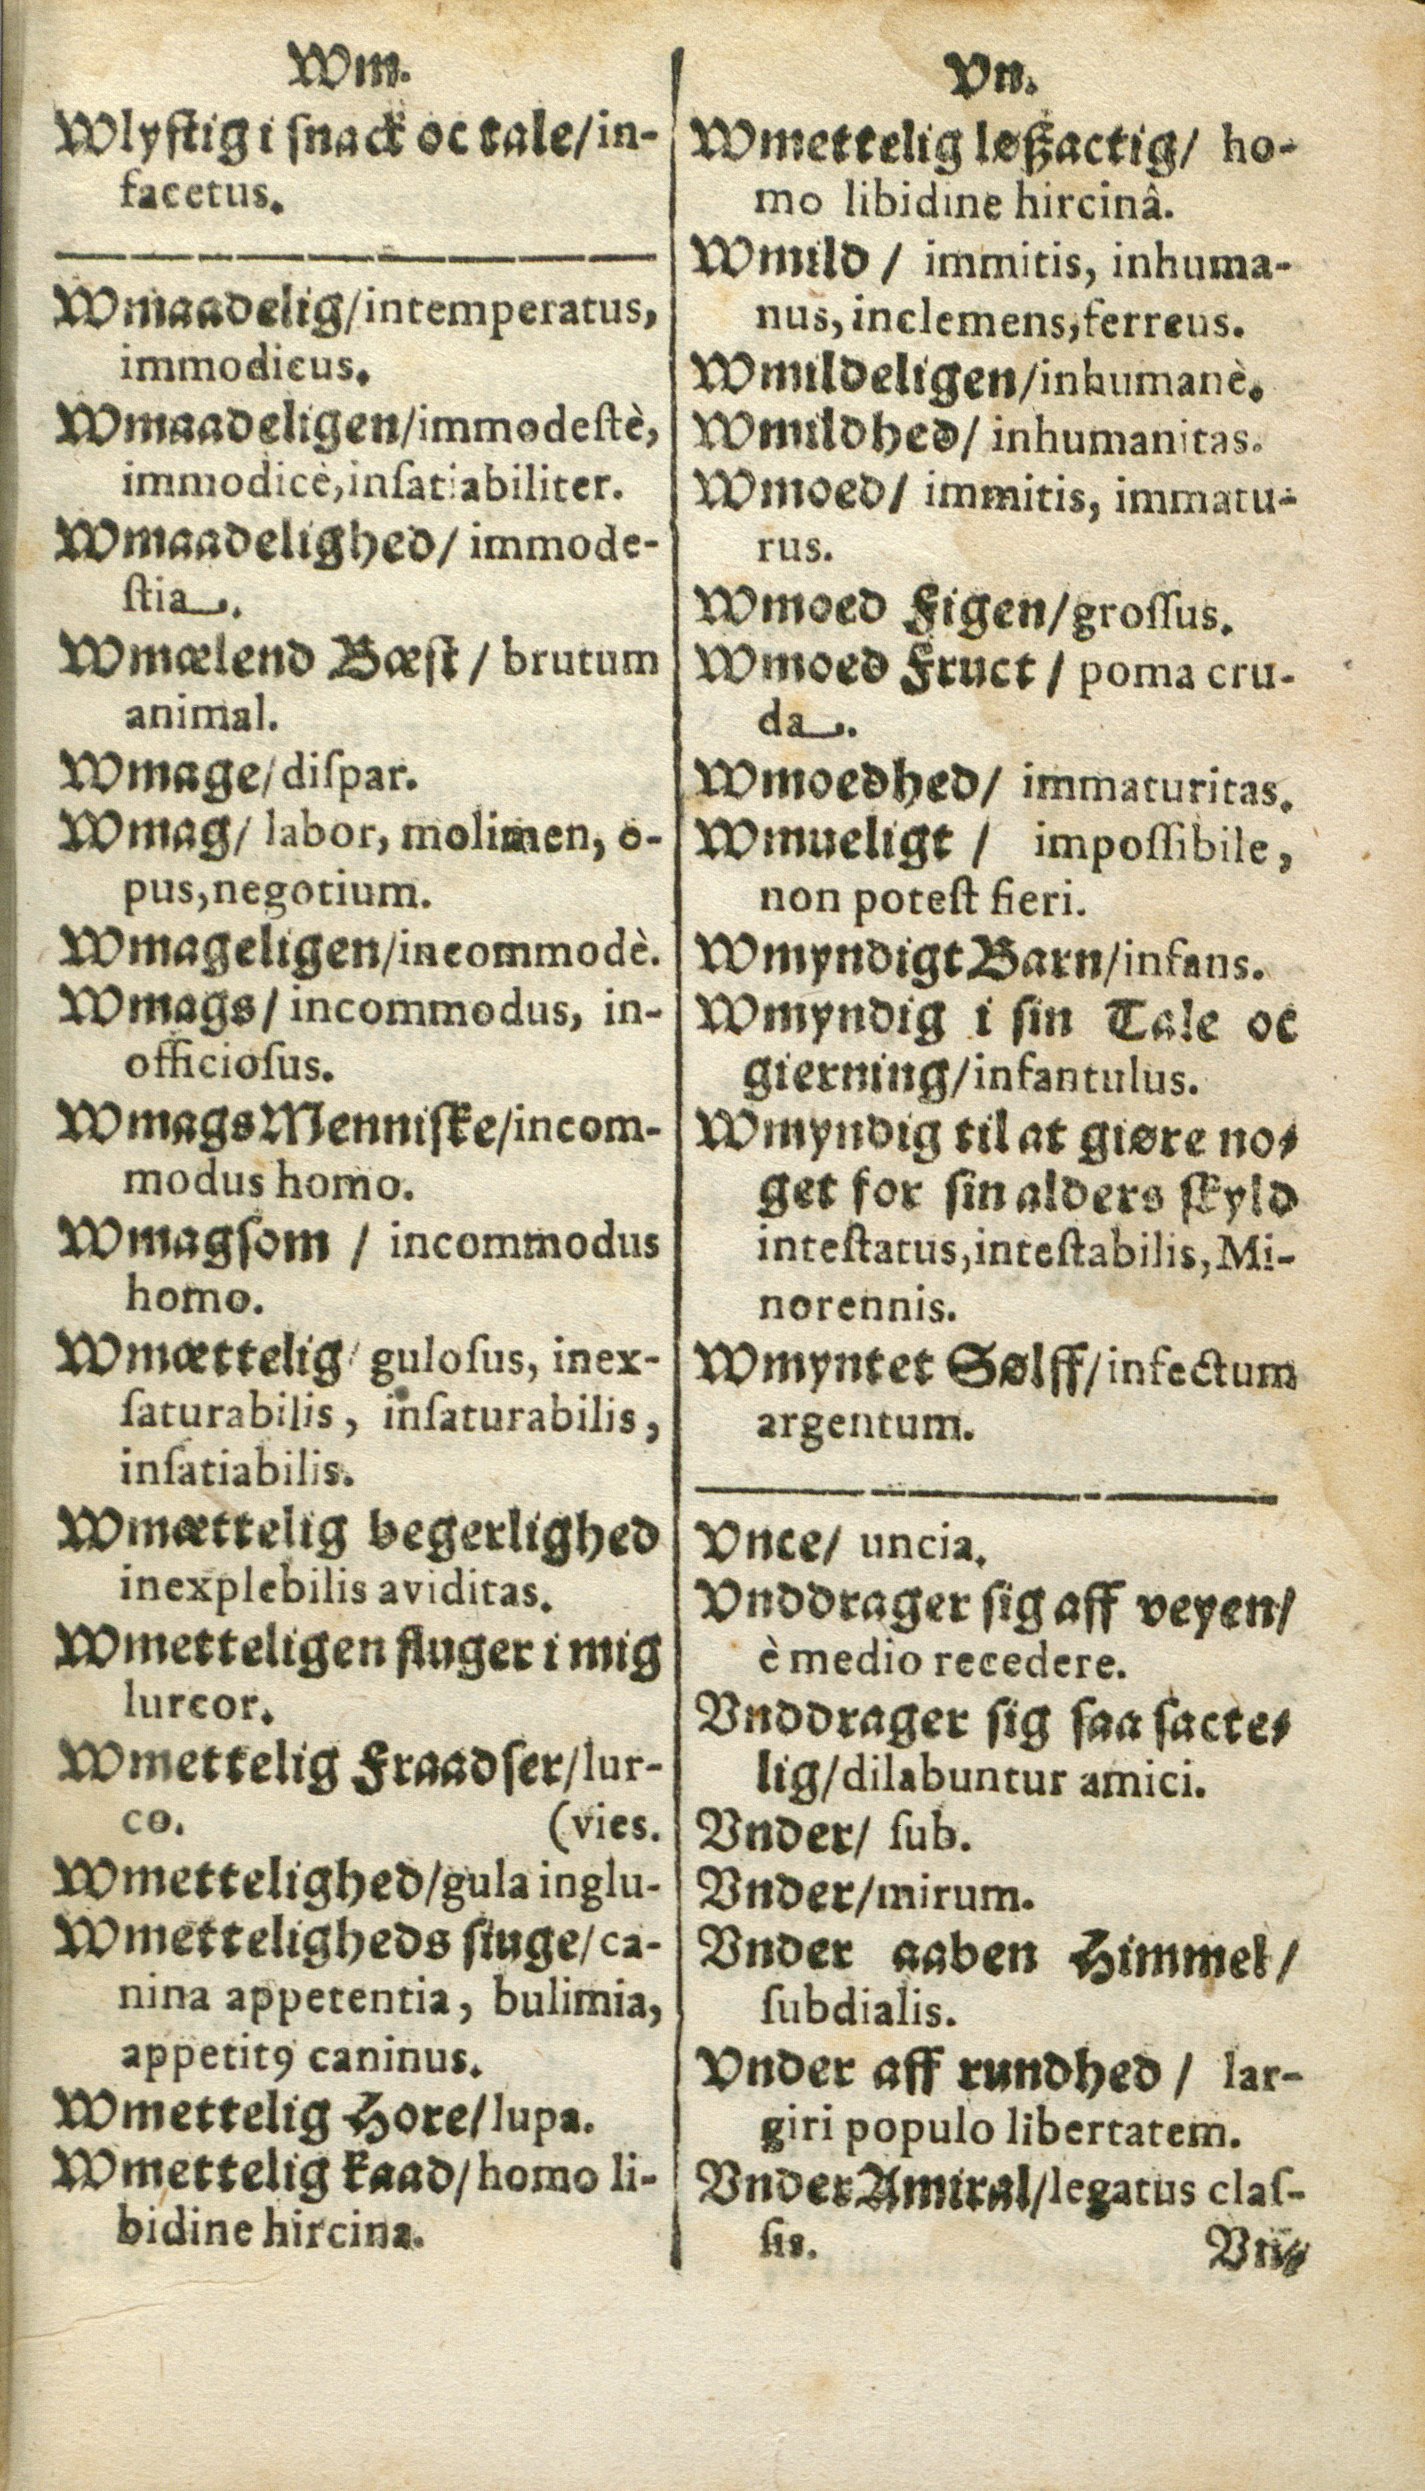 Wm.
Wlystig i snack oc tale/ in-
facetus.
Wmaadelig/intemperatus,
immodicus.
Wmaadeligen/immodestè,
immodicè,insatiabiliter.
Wmaadelighed/ immode-
stia.
Wmælend Bæst / brutum
animal.
Wmage/dispar.
Wmag/ labor, molimen, o-
pus,negotium.
Wmageligen/incommodè.
Wmags/ incommodus, in-
officiosus.
Wmags Menniske/incom-
modus homo.
Wmagsom / incommodus
homo.
Wmættelig/ gulosus, inex-
saturabilis, insaturabilis,
insatiabilis.
Wmættelig begerlighed
inexplebilis aviditas.
Wmetteligen sluger i mig
lurcor.
Wmettelig Fraadser/lur-
co. (vies.
Wmettelighed/gula inglu-
Wmetteligheds siuge/ca-
nina appetentia, bulimia,
appetitꝰ caninus.
Wmettelig Hore/lupa.
Wmettelig kaad/homo li-
bidine hircina.
Vn.
Wmettelig løßactig/ ho-
mo libidine hircinâ.
Wmild / immitis, inhuma-
nus,inclemens,ferreus.
Wmildeligen/inhumanè.
Wmildhed/ inhumanitas.
Wmoed/ immitis, immatu-
rus.
Wmoed Figen/grossus.
Wmoed Fruct / poma cru-
da.
Wmoedhed/ immaturitas.
Wmueligt / impossibile,
non potest fieri.
Wmyndigt Barn/infans.
Wmyndig i sin Tale oc
gierning/infantulus.
Wmyndig til at giøre no-
get for sin alders skyld
intestatus,intestabilis,Mi-
norennis.
Wmyntet Sølff/infectum
argentum.
Vnce/ uncia.
Vnddrager sig aff veyen/
è medio recedere.
Vnddrager sig saa sacte-
lig/dilabuntur amici.
Vnder/ sub.
Vnder/mirum.
Vnder aaben Himmel/
subdialis.
Vnder aff rundhed / lar-
giri populo libertatem.
Vnder Amiral/legatus clas-
sis.
Vn-